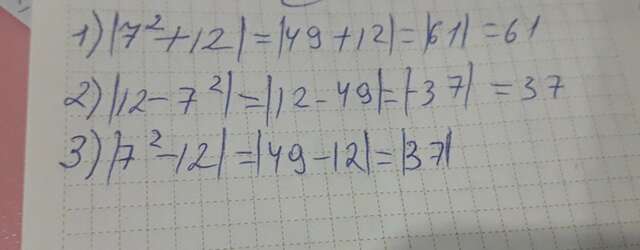 1) |7²+12| = |49+12| = |61| = 61
2) |12-7²| = |12-49| = |-37| = 37
3) |7²-12| = |49-12| = |37|